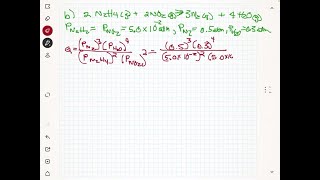 b) 2 N2H4(g) + 2NO2(g) ⇌ 3N2(g) + 4 H2O(g)
PN2H4 = PNO2 = 5.0 × 10⁻² atm, PN2 = 0.5 atm, PH2O = 0.3 atm
Q = (PN2)³ (PH2O)⁴ / (PN2H4)² (PNO2)² = (0.5)³ (0.3)⁴ / (5.0×10⁻²)² (5.0×10